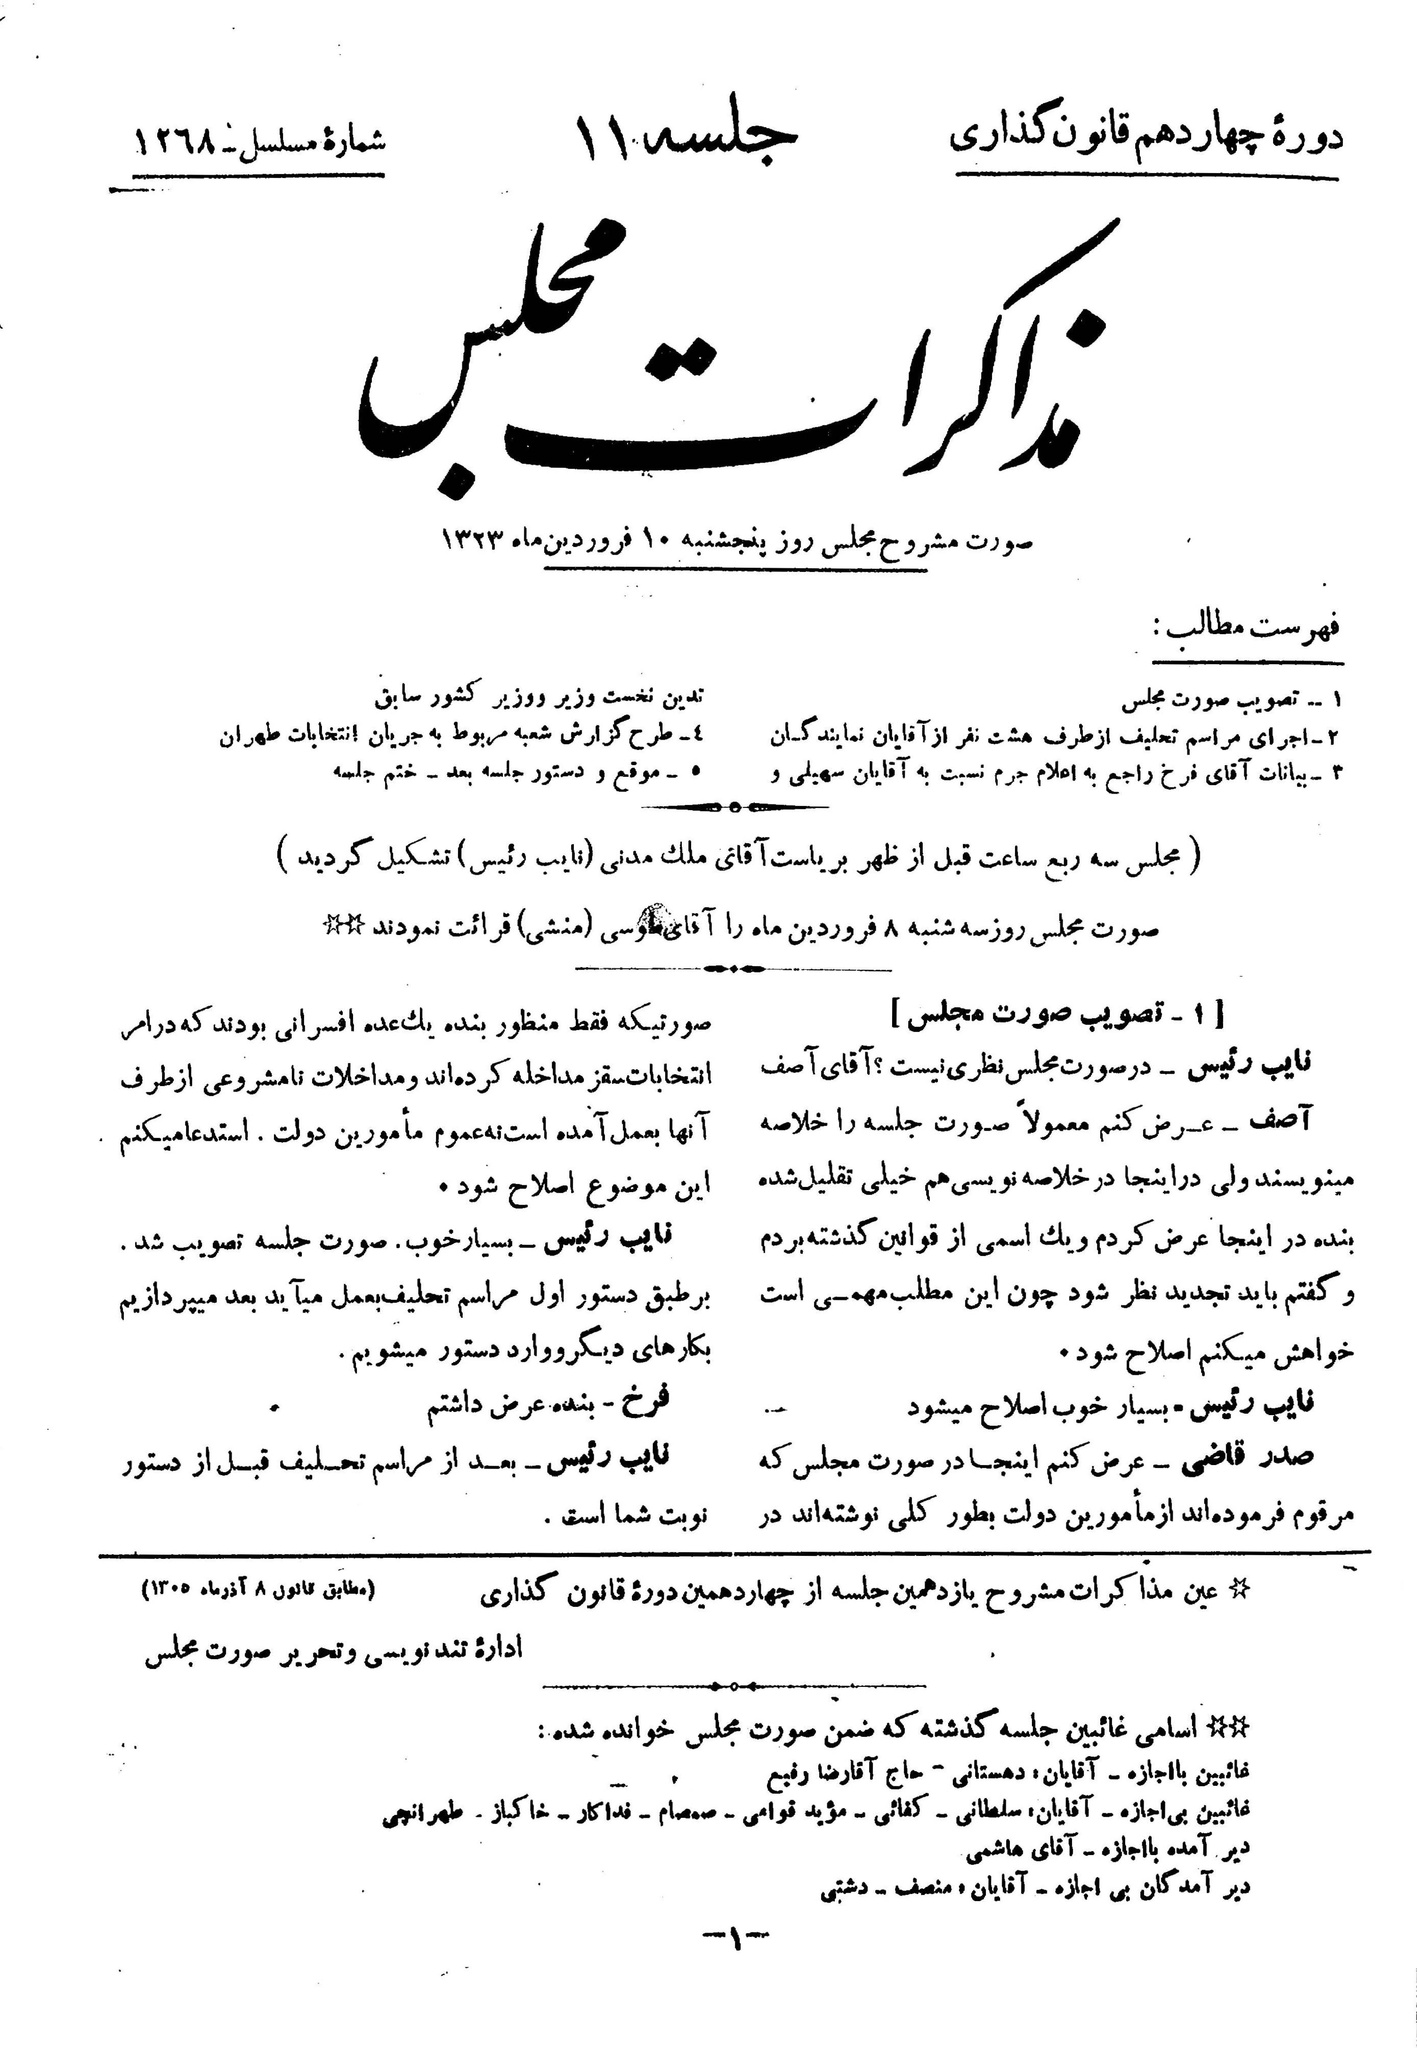 دورهٔ چهاردهم قانون گذاری
جلسه ۱۱
شمارهٔ مسلسل - ۱۲۶۸
مذاکرات مجلس
صورت مشروح مجلس روز پنجشنبه ۱۰ فروردین ماه ۱۳۲۳
فهرست مطالب :
۱ - تصویب صورت مجلس
۲ - اجرای مراسم تحلیف از طرف هشت نفر از آقایان نمایندگان
۳ - بیانات آقای فرخ راجع به اعلام جرم نسبت به آقایان سهیلی و
تدین نخست وزیر و وزیر کشور سابق
۴ - طرح گزارش شعبه مربوط به جریان انتخابات طهران
۵ - موقع و دستور جلسه بعد - ختم جلسه
( مجلس سه ربع ساعت قبل از ظهر بریاست آقای ملك مدنی (نایب رئیس) تشکیل گردید )
صورت مجلس روز سه شنبه ۸ فروردین ماه را آقای طوسی (منشی) قرائت نمودند ☆☆
[ ۱ - تصویب صورت مجلس ]
نایب رئیس - در صورت مجلس نظری نیست ؟ آقای آصف
آصف - عرض کنم معمولاً صورت جلسه را خلاصه
مینویسند ولی در اینجا در خلاصه نویسی هم خیلی تقلیل شده
بنده در اینجا عرض کردم و یك اسمی از قوانین گذشته بردم
و گفتم باید تجدید نظر شود چون این مطلب مهمی است
خواهش میکنم اصلاح شود .
نایب رئیس - بسیار خوب اصلاح میشود
صدر قاضی - عرض کنم اینجا در صورت مجلس که
مرقوم فرموده‌اند از مأمورین دولت بطور کلی نوشته‌اند در
صورتیکه فقط منظور بنده یك عده افسرانی بودند که در امر
انتخابات سقز مداخله کرده‌اند و مداخلات نامشروعی از طرف
آنها بعمل آمده است نه عموم مأمورین دولت . استدعا میکنم
این موضوع اصلاح شود .
نایب رئیس - بسیار خوب . صورت جلسه تصویب شد .
برطبق دستور اول مراسم تحلیف بعمل میآید بعد میپردازیم
بکارهای دیگر و وارد دستور میشویم .
فرخ - بنده عرض داشتم
نایب رئیس - بعد از مراسم تحلیف قبل از دستور
نوبت شما است .
☆ عین مذاکرات مشروح یازدهمین جلسه از چهاردهمین دورهٔ قانون گذاری (مطابق قانون ۸ آذرماه ۱۳۰۵)
ادارهٔ تند نویسی و تحریر صورت مجلس
☆☆ اسامی غائبین جلسه گذشته که ضمن صورت مجلس خوانده شده :
غائبین با اجازه - آقایان : دهستانی - حاج آقا رضا رفیع
غائبین بی اجازه - آقایان : سلطانی - کفائی - مؤید قوامی - صمصام - فداکار - خاکباز - طهرانچی
دیر آمده با اجازه - آقای هاشمی
دیر آمدگان بی اجازه - آقایان : منصف - دشتی
-۱-